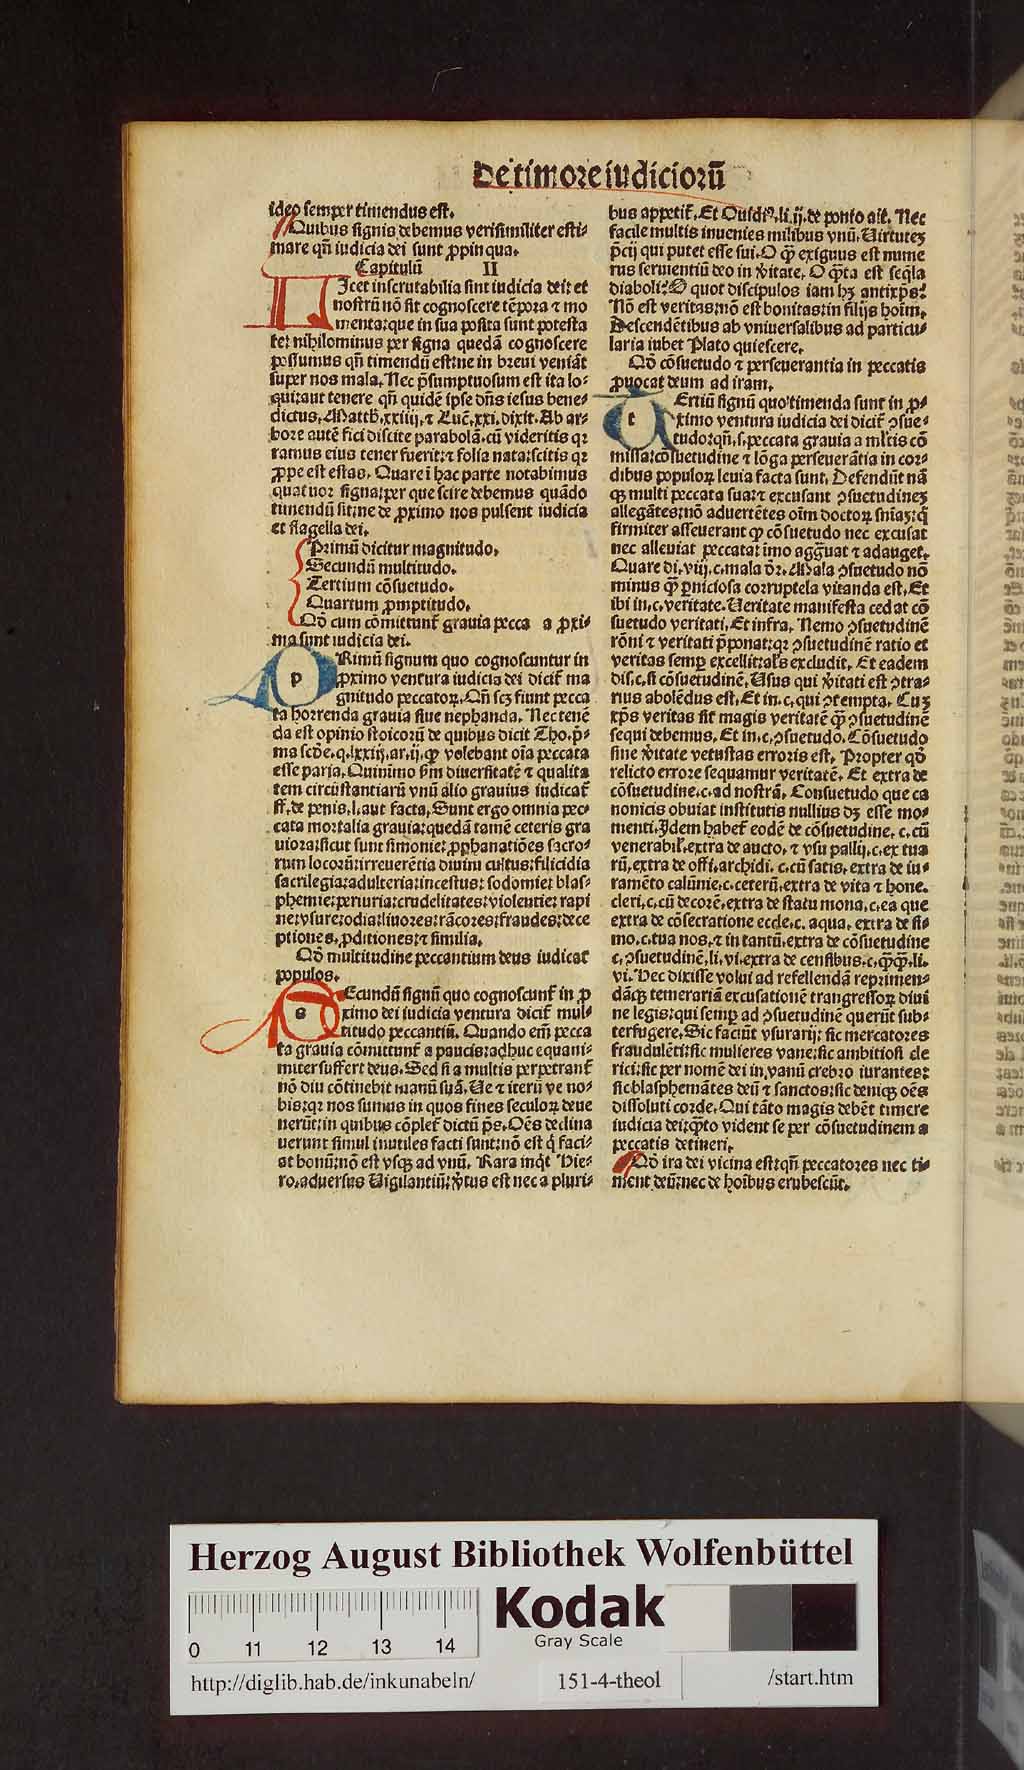 De timore iudicioꝝ
ideo semper timendus est.
Quibus signis debemus verisimiliter esti-
mare qñ iudicia dei sunt ꝓpinqua.
Capitulū II
Icet inscrutabilia sint iudicia dei: et
nostrū nō sit cognoscere tēpora ⁊ mo
menta: que in sua posita sunt potesta
te: nihilominus per signa quedā cognoscere
possumus qñ timendū est: ne in breui veniāt
super nos mala. Nec p̄sumptuosum est ita lo-
qui: aut tenere qñ quidē ipse dn̄s iesus bene-
dictus. Matth̄. xxiiij. ⁊ Luc̄. xxi. dixit. Ab ar-
bore autē fici discite parabolā. cū videritis qꝛ
ramus eius tener fuerit: ⁊ folia nata: scitis qꝛ
ꝓpe est estas. Quare ī hac parte notabimus
quatuor signa: per que scire debemus quādo
timendū sit: ne de ꝓximo nos pulsent iudicia
et flagella dei.
Primū dicitur magnitudo.
Secundū multitudo.
Tertium cōsuetudo.
Quartum ꝓmptitudo.
Qō cum cōmittunt̄ grauia pecca a ꝓxi-
ma sunt iudicia dei.
p Rimū signum quo cognoscuntur in
ꝓximo ventura iudicia dei dicit̄ ma
gnitudo peccatoꝝ. Qñ scꝫ fiunt pecca
ta horrenda grauia siue nephanda. Nec tenē
da est opinio stoicorū de quibus dicit Tho. p̄-
ma scd̄e. q. lxxiij. ar. ij. ꝙ volebant oīa peccata
esse paria. Quinimo s̄m diuersitatē ⁊ qualita
tem circūstantiarū vnū alio grauius iudicat̄
ff. de penis. l. aut facta. Sunt ergo omnia pec-
cata mortalia grauia: quedā tamē ceteris gra
uiora: sicut sunt simonie: ꝓphanatiōes sacro-
rum locorū: irreuerētia diuini cultus: filicidia
sacrilegia: adulteria: incestus: sodomie: blas-
phemie: periuria: crudelitates: violentie: rapi
ne: vsure: odia: liuores: rācores: fraudes: dece
ptiones. ꝓditiones: ⁊ similia.
Qō multitudine peccantium deus iudicat
populos.
s Ecundū signū quo cognoscunt̄ in ꝓ
ximo dei iudicia ventura dicit̄ mul-
titudo peccantiū. Quando em̄ pecca
ta grauia cōmittunt̄ a paucis: adhuc equani-
miter suffert deus. Sed si a multis perpetrant̄
nō diu cōtinebit manū suā. Ue ⁊ iterū ve no-
bis: qꝛ nos sumus in quos fines seculoꝝ deue
nerūt: in quibus cōplet̄ dictū p̄s. Oēs declina
uerunt simul inutiles facti sunt: nō est q̇ faci-
at bonū: nō est vsqꝫ ad vnū. Rara inq̇t Hie-
ro. aduersus Uigilantiū: v̄tus est nec a pluri-
bus appetit̄. Et Ouidiꝰ. li. ij. de ponto ait. Nec
facile multis inuenies milibus vnū. Uirtuteꝫ
p̄cij qui putet esse sui. O ꝙ̄ exiguus est nume
rus seruientiū deo in v̄itate. O q̄ta est seq̄la
diaboli: O quot discipulos iam hꝫ antixp̄s:
Nō est veritas: nō est bonitas: in filijs hoīm.
Descendētibus ab vniuersalibus ad particu-
laria iubet Plato quiescere.
Qō cōsuetudo ⁊ perseuerantia in peccatis
ꝓuocat deum ad iram.
t Ertiū signū quo timenda sunt in ꝓ-
ximo ventura iudicia dei dicit̄ ꝯsue-
tudo: qñ. s. peccata grauia a ml̄tis cō
missa: cōsuetudine ⁊ lōga perseuerātia in cor-
dibus populoꝝ leuia facta sunt. Defendūt nā
qꝫ multi peccata sua: ⁊ excusant ꝯsuetudineꝫ
allegātes: nō aduertētes oīm doctoꝝ sn̄iaꝫ: q̇
firmiter asseuerant ꝙ cōsuetudo nec excusat
nec alleuiat peccata: īmo aggrauat ⁊ adauget.
Quare di. viij. c. mala d̄r. Mala ꝯsuetudo nō
minus ꝙ̄ ꝑniciosa corruptela vitanda est. Et
ibi in. c. veritate. Ueritate manifesta cedat cō
suetudo veritati. Et infra. Nemo ꝯsuetudinē
rōni ⁊ veritati p̄ponat: qꝛ ꝯsuetudinē ratio et
veritas semꝑ excellit: al̄s excludit. Et eadem
dis. c. si cōsuetudinē. Usus qui v̄itati est ꝯtra-
rius abolēdus est. Et in. c. qui ꝯtempta. Cuꝫ
xp̄s veritas sit magis veritatē ꝙ̄ ꝯsuetudinē
sequi debemus. Et in. c. ꝯsuetudo. Cōsuetudo
sine v̄itate vetustas erroris est. Propter qd̄
relicto errore sequamur veritatē. Et extra de
cōsuetudine. c. ad nostrā. Consuetudo que ca
nonicis obuiat institutis nullius dꝫ esse mo-
menti. Idem habet̄ eodē de cōsuetudine. c. cū
venerabil̄. extra de aucto. ⁊ vsu pallij. c. ex tua
rū. extra de offi. archidi. c. cū satis. extra de iu-
ramēto calūnie. c. ceterū. extra de vita ⁊ hone.
cleri. c. cū decorē. extra de statu mona. c. ea que
extra de cōsecratione eccle. c. aqua. extra de si-
mo. c. tua nos. ⁊ in tantū. extra de cōsuetudine
c. ꝯsuetudinē. li. vi. extra de censibus. c. ꝙ̄ꝙ̄. li.
vi. Hec dixisse volui ad refellendā reprimen-
dāqꝫ temerariā excusationē trangressoꝝ diui
ne legis: qui semꝑ ad ꝯsuetudinē querūt sub-
terfugere. Sic faciūt vsurarij: sic mercatores
fraudulēti: sic mulieres vane: sic ambitiosi cle
rici: sic per nomē dei in vanū crebro iurantes:
sic blasphemātes deū ⁊ sanctos: sic deniqꝫ oēs
dissoluti corde. Qui tāto magis debēt timere
iudicia dei: q̄to vident se per cōsuetudinem a
peccatis detineri.
Qō ira dei vicina est: qñ peccatores nec ti-
ment deū: nec de hoībus erubescūt.
Herzog August Bibliothek Wolfenbüttel
Kodak
Gray Scale
0 11 12 13 14
http://diglib.hab.de/inkunabeln/ 151-4-theol /start.htm